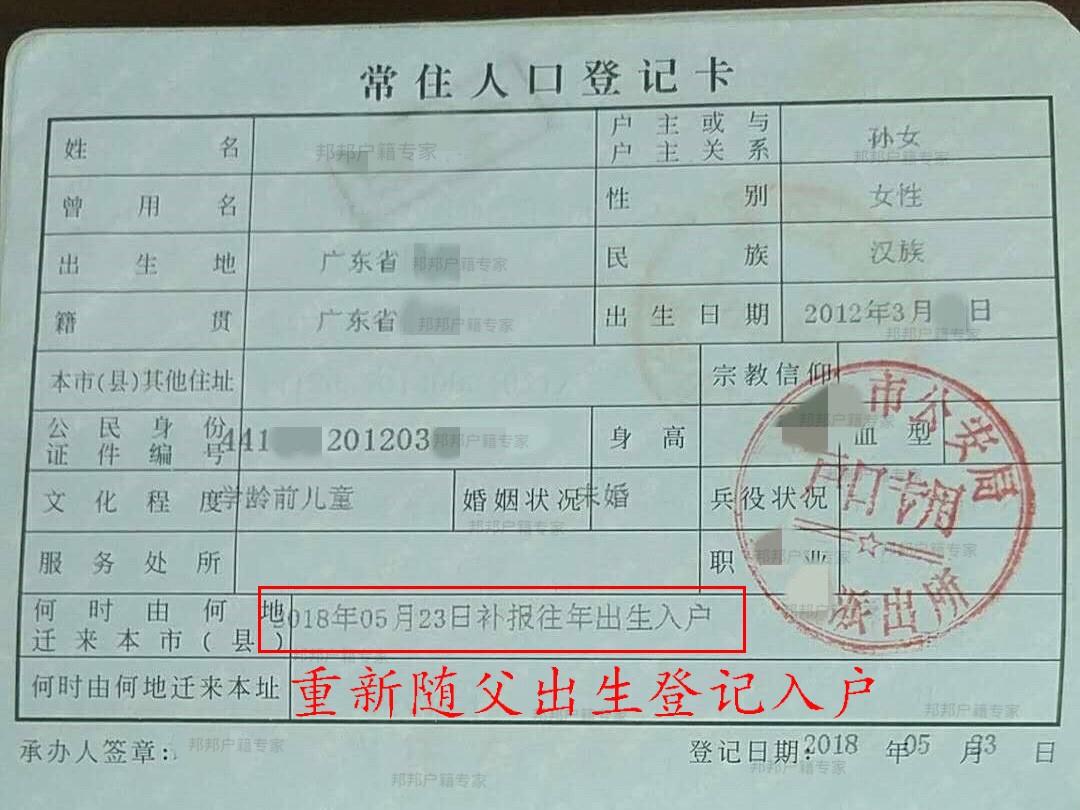 常住人口登记卡
姓名 户主或与户主关系 孙女
曾用名 性别 女性
出生地 广东省 民族 汉族
籍贯 广东省 出生日期 2012年3月 日
本市(县)其他住址 宗教信仰
公民身份证件编号 441 201203 身高 血型
文化程度 学龄前儿童 婚姻状况 未婚 兵役状况
服务处所 职业
何时由何地迁来本市(县) 2018年05月23日补报往年出生入户
何时由何地迁来本址 重新随父出生登记入户
承办人签章: 登记日期: 2018年05月23日
市公安局
户口专用
派出所
邦邦户籍专家
邦邦户籍专家
邦邦户籍专家
邦邦户籍专家
邦邦户籍专家
邦邦户籍专家
邦邦户籍专家
邦邦户籍专家
邦邦户籍专家
邦邦户籍专家
邦邦户籍专家
邦邦户籍专家
邦邦户籍专家
邦邦户籍专家